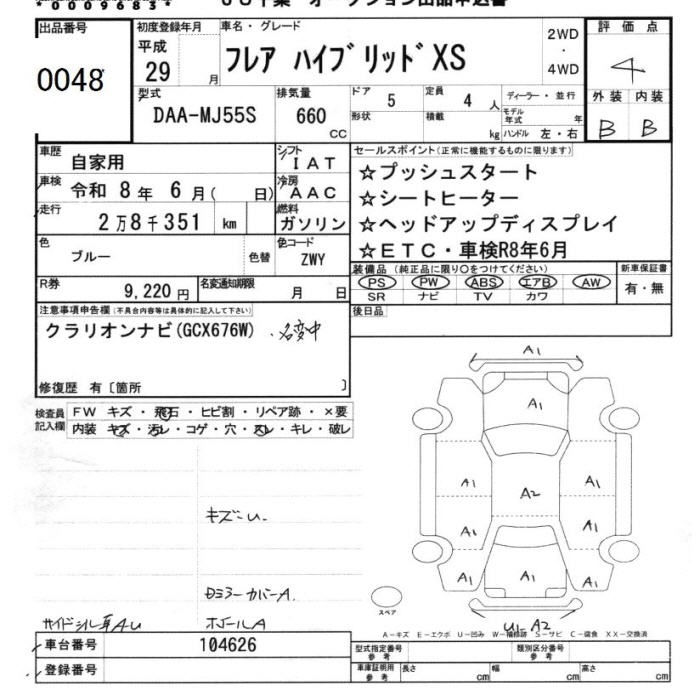 00096834
出品番号
0048
初度登録年月
平成
29 月
車名・グレード
フレア ハイブリッド XS
2WD
・
4WD
評価点
4
型式
DAA-MJ55S
排気量
660
CC
ドア
5
定員
4 人
形状
積載
kg
ディーラー・並行
モデル年式 年
ハンドル 左・右
外装 内装
B B
車歴
自家用
シフト
IAT
車検
令和 8 年 6 月( 日)
冷房
AAC
走行
2万8千351 km
燃料
ガソリン
色
ブルー
色替
色コード
ZWY
R券
9,220 円
名変通知期限
月 日
セールスポイント(正常に機能するものに限ります)
☆プッシュスタート
☆シートヒーター
☆ヘッドアップディスプレイ
☆ETC・車検R8年6月
装備品 (純正品に限り○をつけてください)
PS PW ABS エアB AW
SR ナビ TV カワ
新車保証書
有・無
後日品
注意事項申告欄 (不具合内容等は具体的に記入して下さい)
クラリオンナビ(GCX676W) 、名変中
修復歴 有〔箇所 〕
検査員
記入欄
FW キズ・飛石・ヒビ割・リペア跡・×要
内装 キズ・汚レ・コゲ・穴・スレ・キレ・破レ
A1
A1
A1 A2 A1
A1 A1
A1 A1 A1
U1 A2
スペア
A-キズ E-エクボ U-凹み W-補修跡 S-サビ C-腐食 XX-交換済
車台番号
104626
登録番号
型式指定番号
参考
類別区分番号
参考
車庫証明用
参考
長さ cm
幅 cm
高さ cm